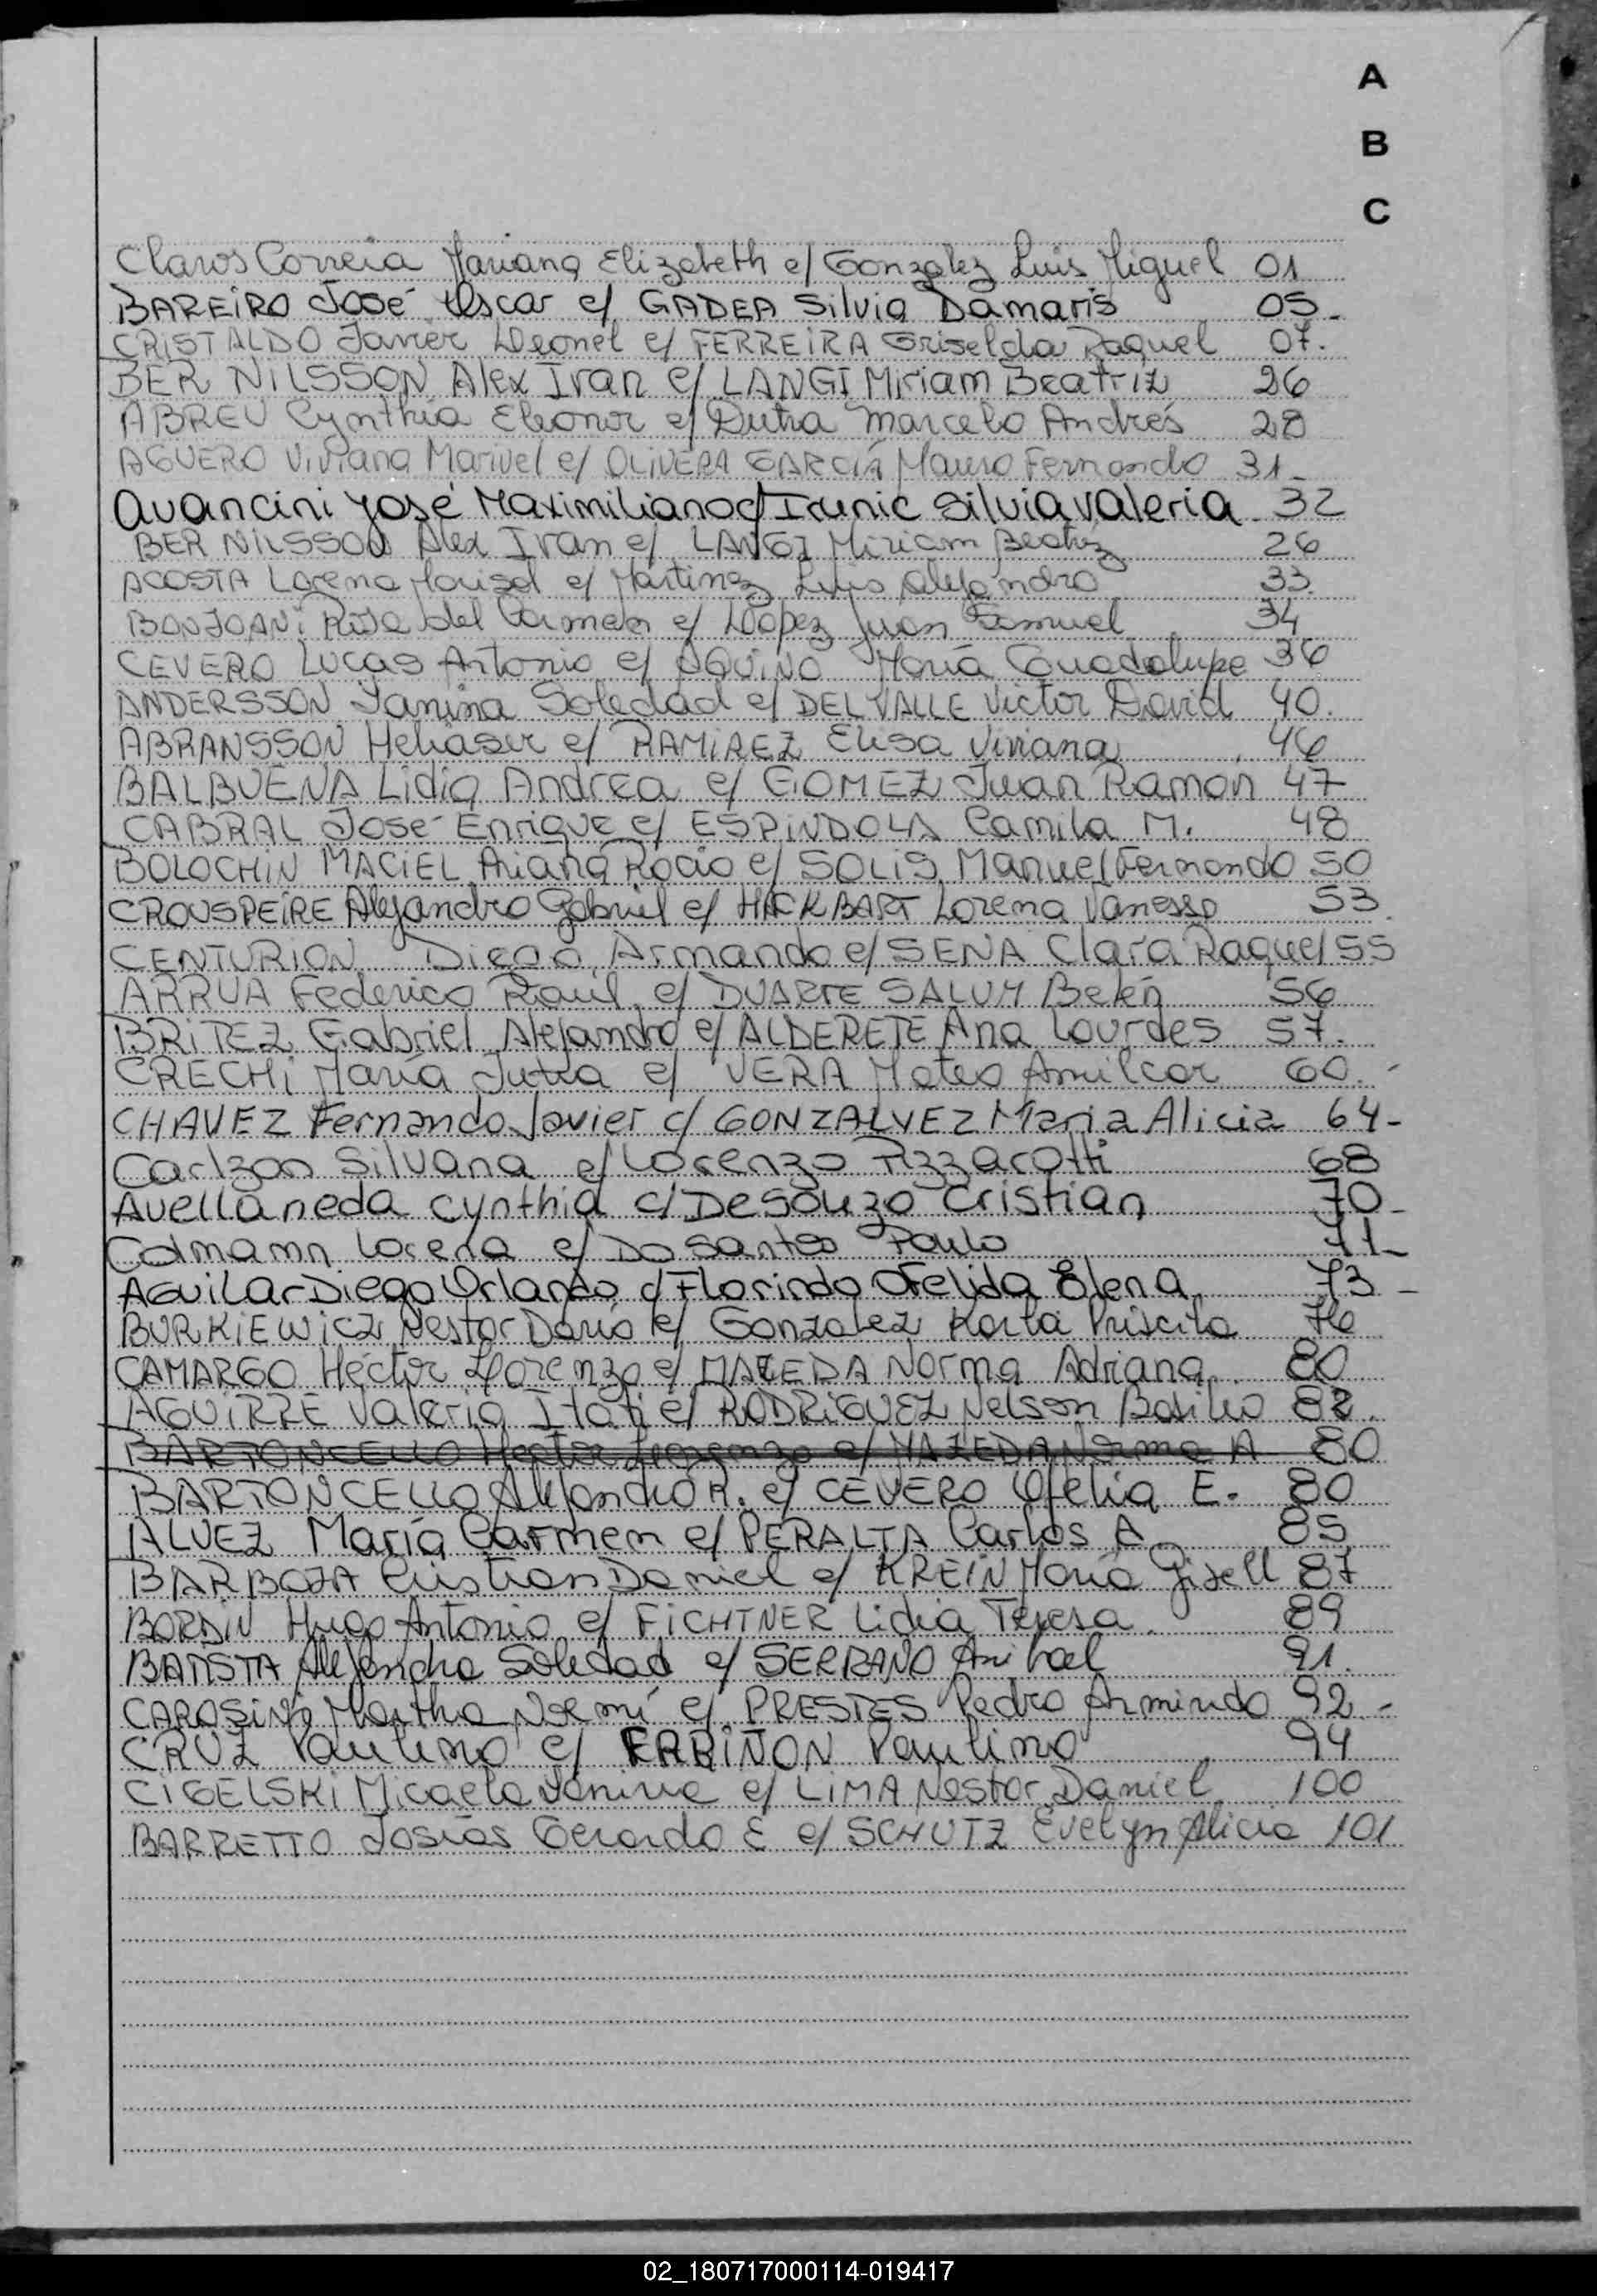 A
B
C
Claros Correia Mariana Elizabeth c/ Gonzalez Luis Miguel 01
BAREIRO José Oscar c/ GADEA Silvia Damaris 05.
CRISTALDO Javier Leonel c/ FERREIRA Griselda Raquel 07.
BER NILSSON Alex Ivan c/ LANGI Miriam Beatriz 26
ABREU Cynthia Eleonor c/ Dutra Marcelo Andrés 28
AGUERO Viviana Marivel c/ OLIVERA GARCÍA Mauro Fernando 31-
Avancini José Maximiliano c/ Irunic Silvia Valeria 32
BER NILSSON Alex Ivan c/ LANGI Miriam Beatriz 26
ACOSTA Lorena Marisol c/ Martinez Luis Alejandro 33.
BONJOANI Rosa del Carmen c/ López Juan Samuel 34
CEVERO Lucas Antonio c/ AQUINO María Guadalupe 36
ANDERSSON Yanina Soledad c/ DEL VALLE Victor David 40.
ABRANSSON Heliasir c/ RAMIREZ Elisa Viviana 46
BALBUENA Lidia Andrea c/ GOMEZ Juan Ramon 47
CABRAL José Enrique c/ ESPINDOLA Camila M. 48
BOLOCHIN MACIEL Ariana Rocio c/ SOLIS Manuel Fernando 50
CROUSPEIRE Alejandro Gabriel c/ HACKBART Lorena Vanessa 53.
CENTURION Diego Armando c/ SENA Clara Raquel 55
ARRUA Federico Raúl c/ DUARTE SALUM Belén 56
BRITEZ Gabriel Alejandro c/ ALDERETE Ana Lourdes 57.
CRECHI María Jutta c/ VERA Mateo Amilcar 60.-
CHAVEZ Fernando Javier c/ GONZALVEZ Maria Alicia 64-
Carlzon Silvana c/ Lorenzo Pizzarotti 68
Avellaneda Cynthia c/ Desouzo Cristian 70-
Colmann Lorena c/ Do Santos Paulo 71-
AGUILAR Diego Orlando c/ Florindo Ofelida Elena 73-
BURKIEWICZ Nestor Dario c/ Gonzalez Karla Priscila 76
CAMARGO Héctor Lorenzo c/ MAZEDA Norma Adriana 80
AGUIRRE Valeria Itati c/ RODRIGUEZ Nelson Basilio 82.
BARTONCELLO Hector Lorenzo c/ MAZEDA Norma A 80
BARTONCELLO Alejandro R. c/ CEVERO Ofelia E. 80
ALVEZ María Carmen c/ PERALTA Carlos A. 85
BARBOZA Cristian Daniel c/ KREIN María Gisell 87
BORDIN Hugo Antonio c/ FICHTNER Lidia Teresa. 89
BATISTA Alejandra Soledad c/ SERRANO Anibal 91.
CAROSINI Martha Noemí c/ PRESTES Pedro Armindo 92.-
CRUZ Paulino c/ FARIÑON Paulino 94
CIGELSKI Micaela Yanina c/ LIMA Nestor Daniel 100
BARRETTO Josías Gerardo E c/ SCHUTZ Evelyn Alicia 101
02_180717000114-019417